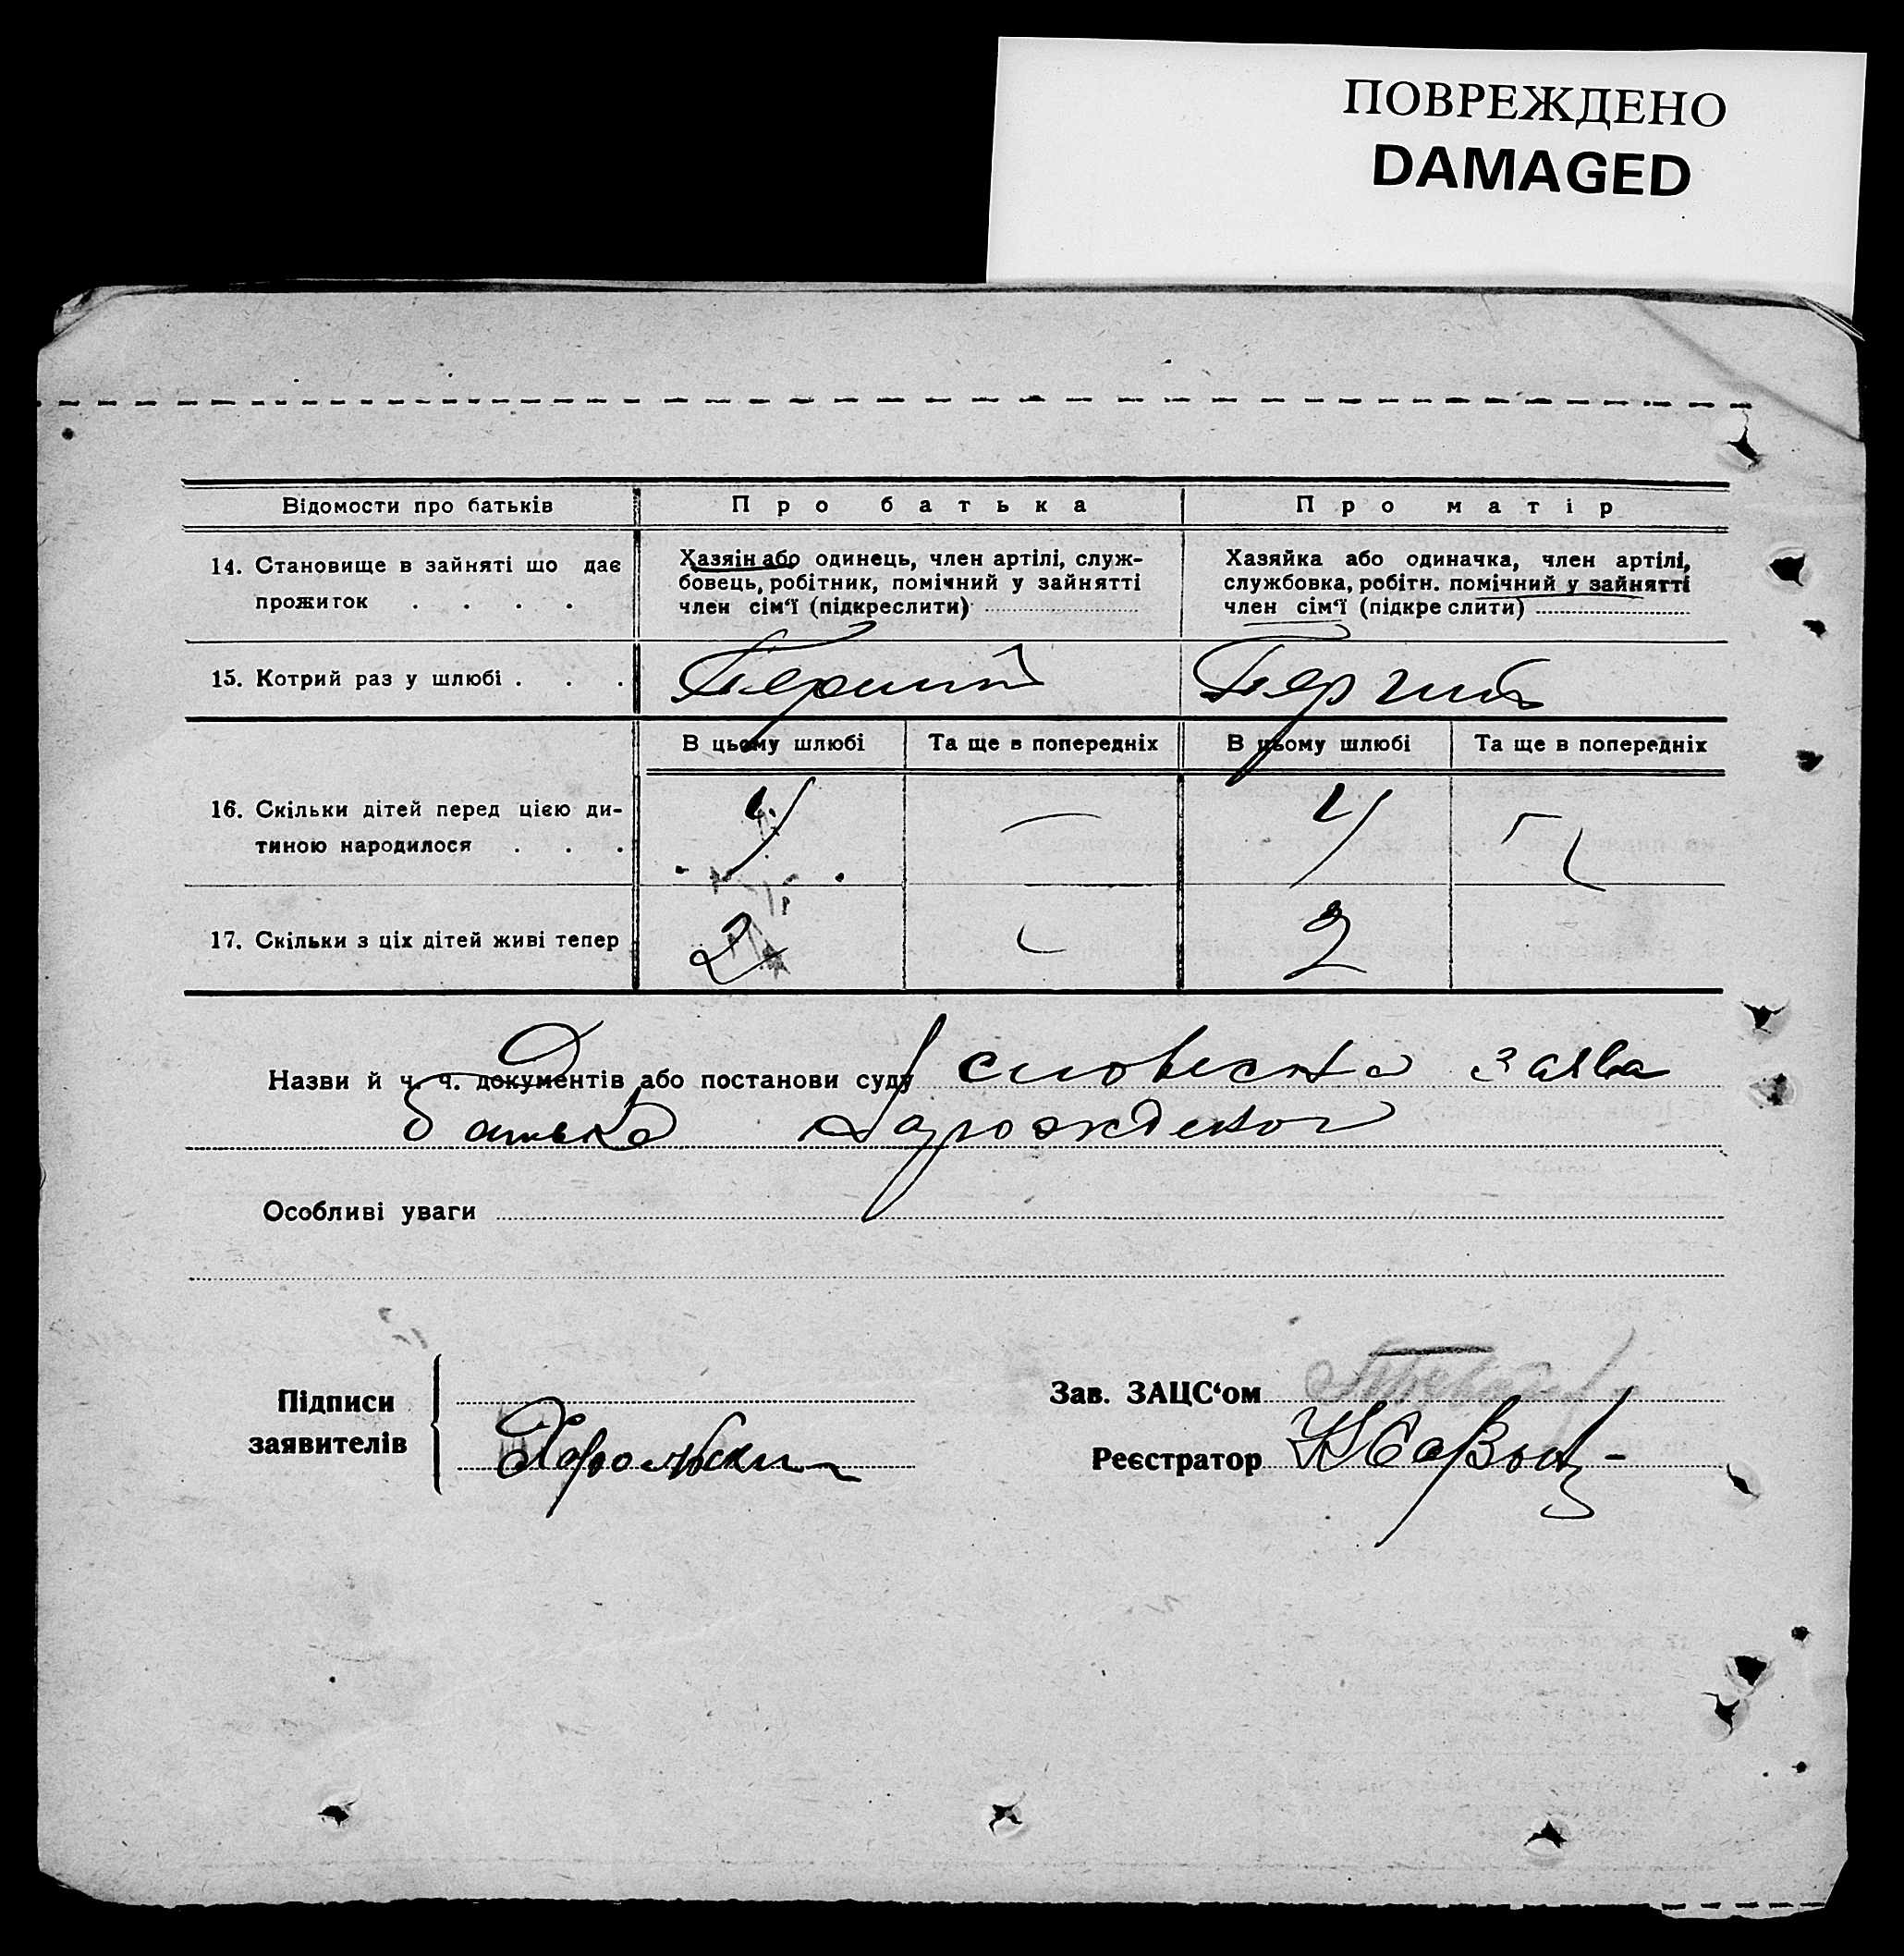 ПОВРЕЖДЕНО
DAMAGED
Відомости про батьків
Про батька
Про матір
14. Становище в зайняті що дає
прожиток . . . .
Хазяїн або одинець, член артілі, служ-
бовець, робітник, помічний у зайнятті
член сім'ї (підкреслити)
Хазяйка або одиначка, член артілі,
службовка, робітн. помічний у зайнятті
член сім'ї (підкреслити)
15. Котрий раз у шлюбі . . .
Перший
Перший
В цьому шлюбі
Та ще в попередніх
В цьому шлюбі
Та ще в попередніх
16. Скільки дітей перед цією ди-
тиною народилося . . .
4
—
4
17. Скільки з ціх дітей живі тепер
2
2
Назви й ч. ч. документів або постанови суду словесна заява
батька
Особливі уваги
Підписи
заявителів
Зав. ЗАЦС'ом
Реєстратор